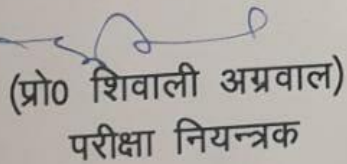 (प्रो0 शिवाली अग्रवाल)
परीक्षा नियन्त्रक